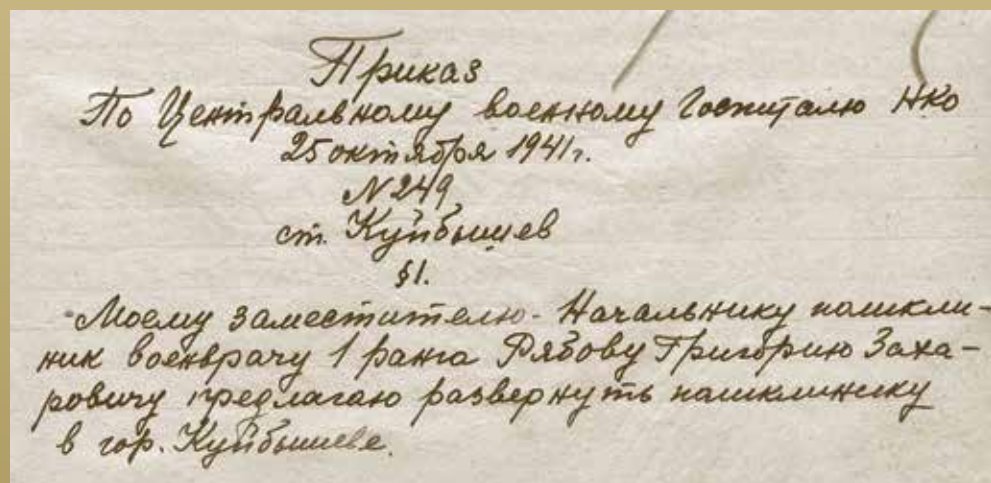 Приказ
По Центральному военному Госпиталю НКО
25 октября 1941г.
N 249
ст. Куйбышев
§1.
Моему заместителю - Начальнику поликли-
ник военврачу 1 ранга Рябову Григорию Заха-
ровичу предлагаю развернуть поликлинику
в гор. Куйбышеве.